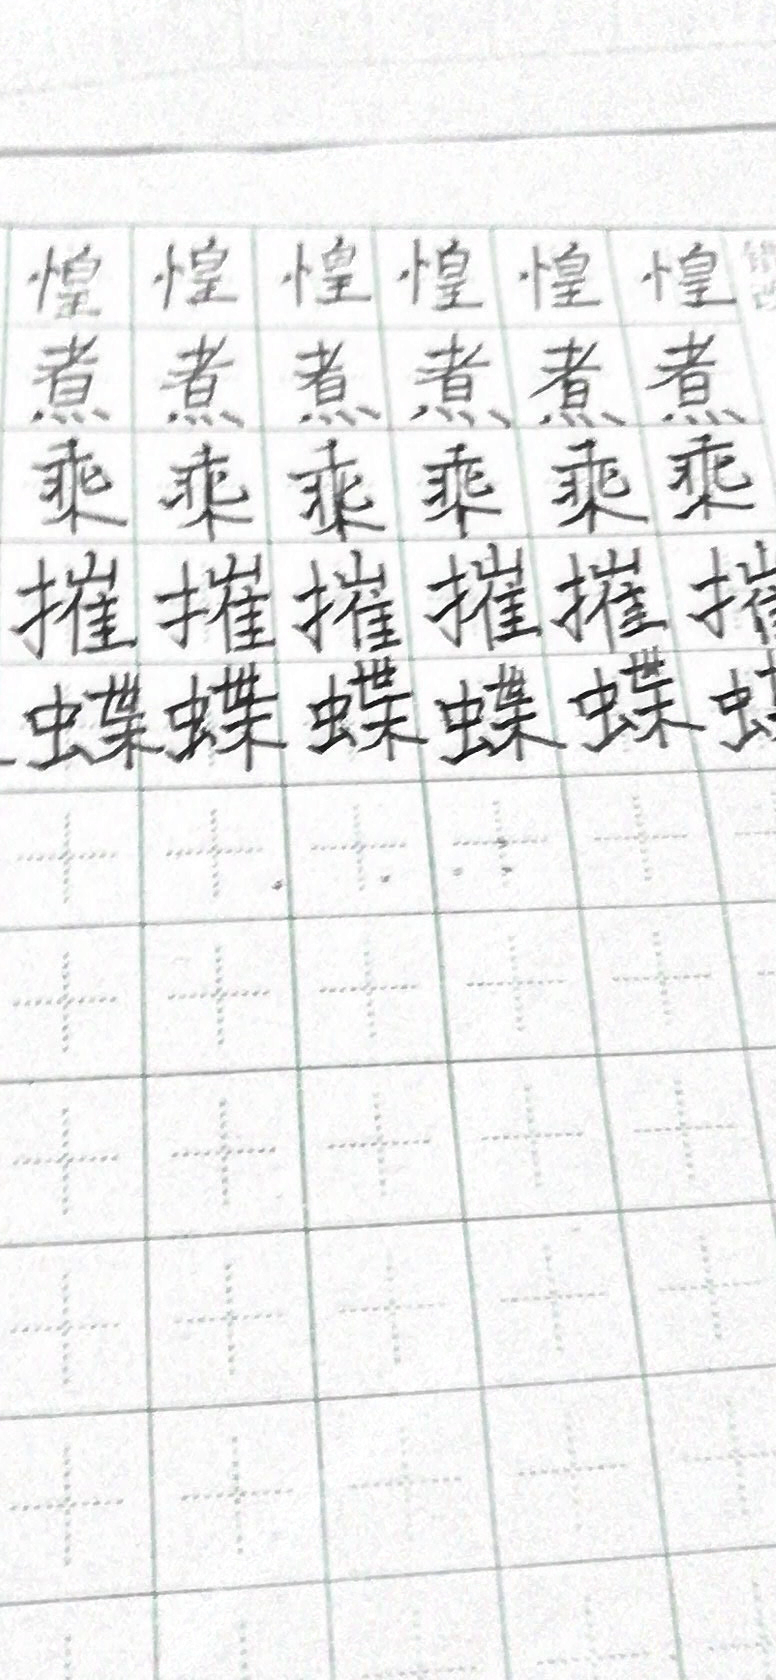 惶惶惶惶惶惶
煮煮煮煮煮煮
乘乘乘乘乘乘
摧摧摧摧摧摧
蝶蝶蝶蝶蝶蝶